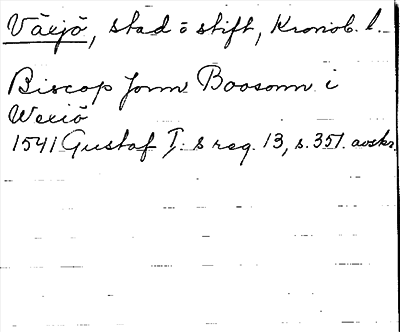 Växjö, stad o stift, Kronob. l.
Biscop Jonn Boosonn i
Wexiö
1541 Gustaf I:s reg. 13, s. 351. avskr.